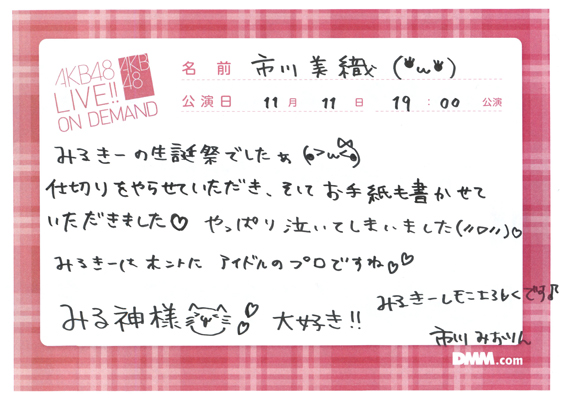 AKB48
LIVE!!
ON DEMAND
AKB
48
名前 市川美織 (*ω*)
公演日 11月11日 19:00 公演
みるきーの生誕祭でしたぁ (>ω<)
仕切りをやらせていただき、そしてお手紙も書かせて
いただきました♡ やっぱり泣いてしまいました(〃ロ〃)♡
みるきーはホントに アイドルのプロですね♡♡
みるきーしもにエるしくです♪
みる神様 ♡♡ 大好き!!
市川みおりん
DMM.com